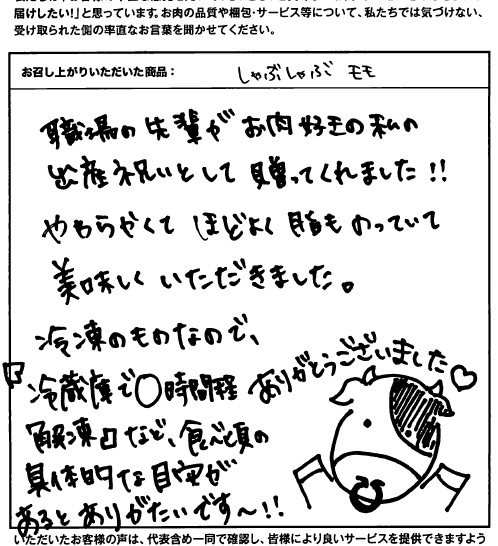 届けしたい!」と思っています。お肉の品質や梱包・サービス等について、私たちでは気づけない、
受け取られた側の率直なお言葉を聞かせてください。
お召し上がりいただいた商品： しゃぶしゃぶ モモ
職場の先輩が お肉好きの私の
出産祝いとして 贈ってくれました!!
やわらかくて ほどよく 脂も のっていて
美味しく いただきました。
冷凍のものなので、
『冷蔵庫で〇時間程
解凍』など、食べ頃の
具体的な目安が
あると ありがたいです〜!!
ありがとうございました♡
いただいたお客様の声は、代表含め一同で確認し、皆様により良いサービスを提供できますよう